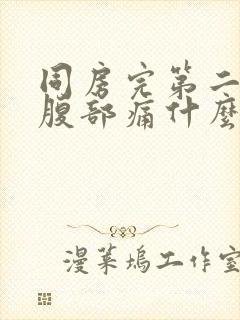 同房完第二
腹部痛什麼
漫葉塢工作室